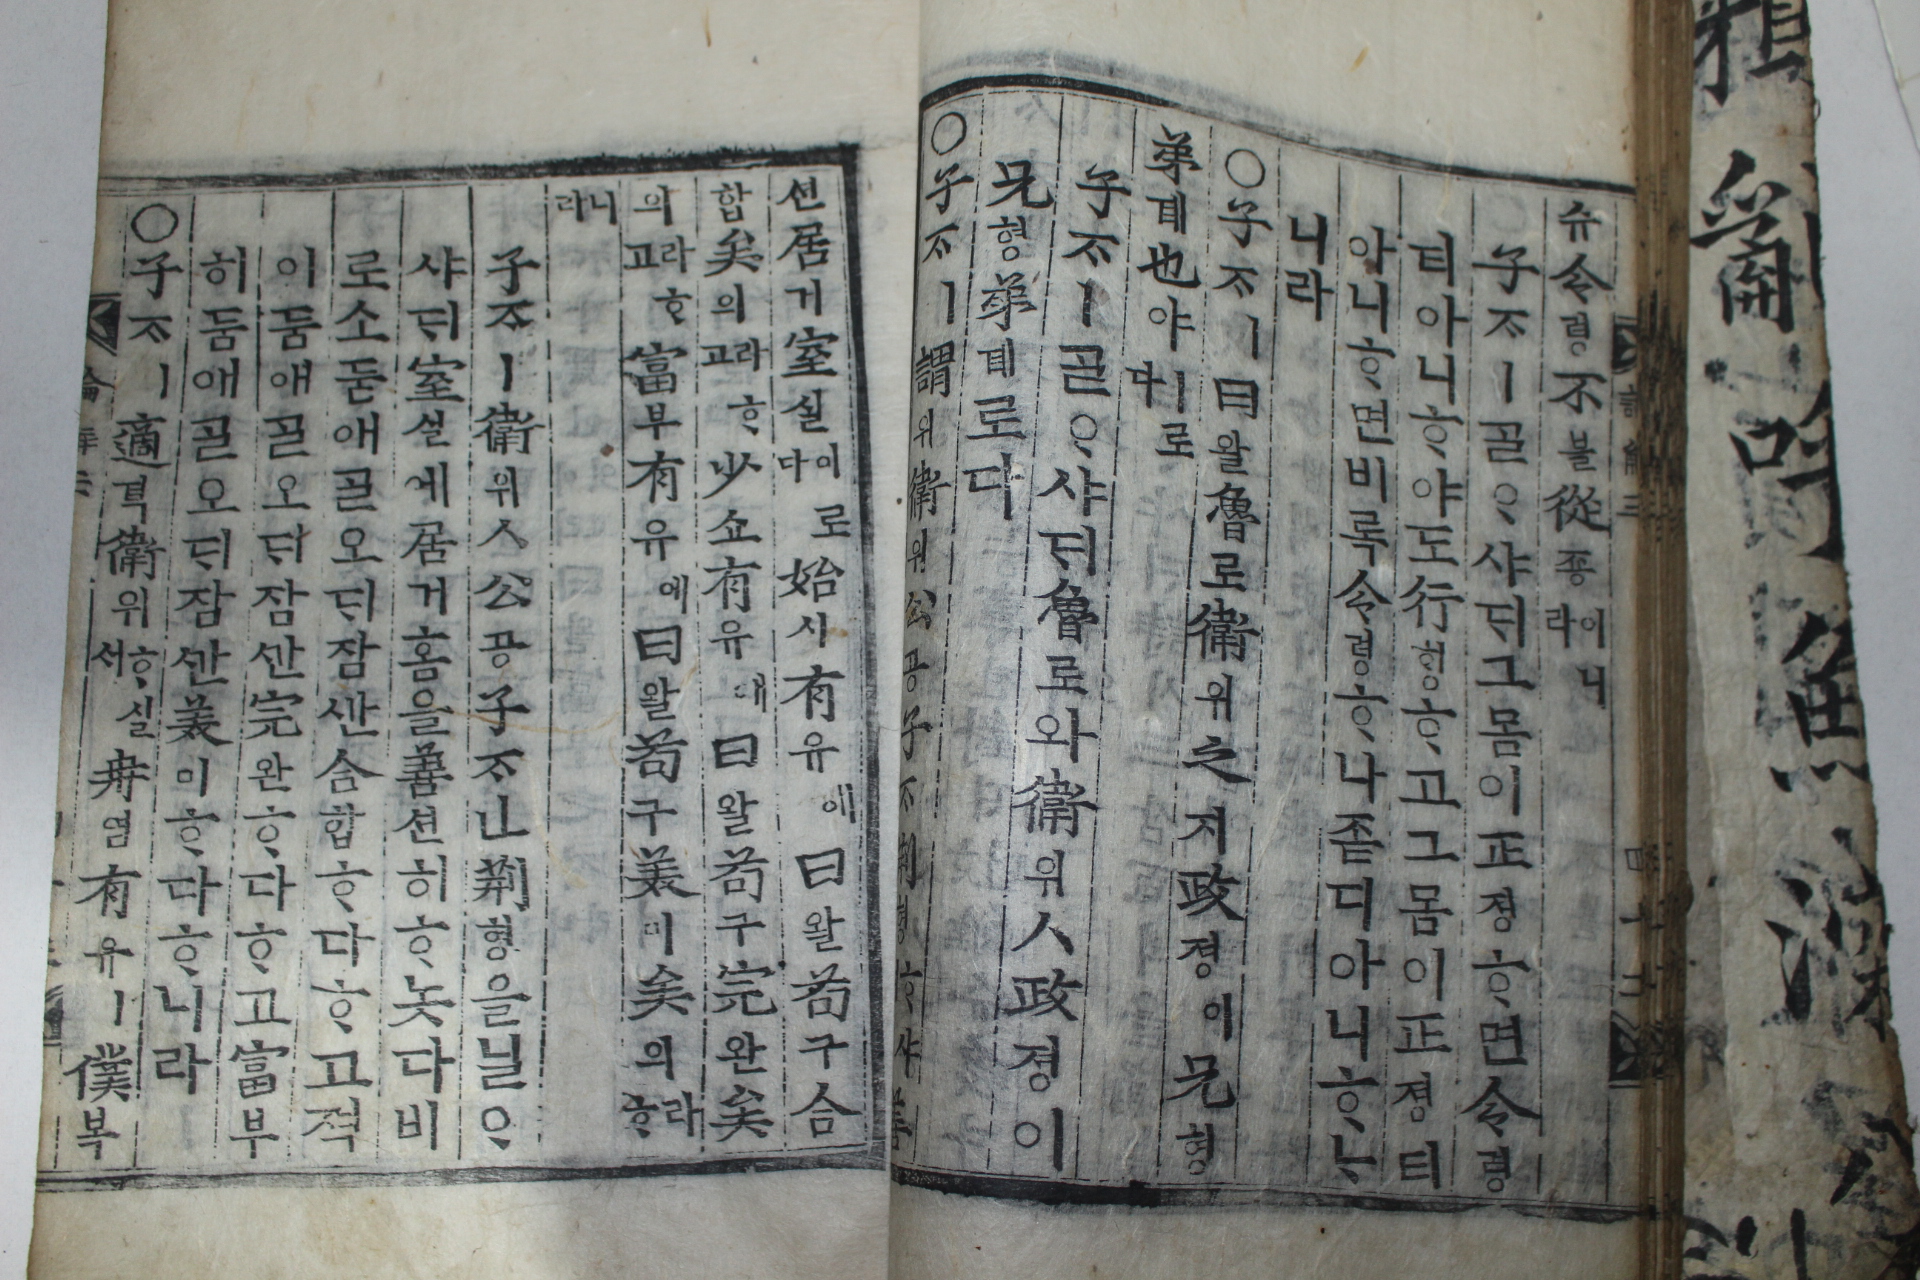 슈令령不불從죵이니라
子ᄌᆞㅣᄀᆞᆯᄋᆞ샤ᄃᆡ그몸이正졍ᄒᆞ면令령
티아니ᄒᆞ야도行ᄒᆡᆼᄒᆞ고그몸이正졍티
아니ᄒᆞ면비록令령ᄒᆞ나좃디아니ᄒᆞᄂᆞ
니라
○子ᄌᆞㅣ曰왈魯로衛위之지政졍이兄형
弟뎨也야ㅣ로다
子ᄌᆞㅣᄀᆞᆯᄋᆞ샤ᄃᆡ魯로와衛위人政졍이
兄형弟뎨로다
○子ᄌᆞㅣ謂위衛위公공子ᄌᆞ荊형ᄒᆞ샤ᄃᆡ
션居거室실이로다始시有유에曰왈苟구合
합矣의라ᄒᆞ고少쇼有유애曰왈苟구完완矣
의라ᄒᆞ고富부有유에曰왈苟구美미矣의라ᄒᆞ
니라
子ᄌᆞㅣ衛위人公공子ᄌᆞ山荊형을닐ᄋᆞ
샤ᄃᆡ室실에居거홈을善션히ᄒᆞ놋다비
로소둠애ᄀᆞᆯ오ᄃᆡ잠ᄭᅡᆫ合합ᄒᆞ다ᄒᆞ고젹
이둠애ᄀᆞᆯ오ᄃᆡ잠ᄭᅡᆫ完완ᄒᆞ다ᄒᆞ고富부
히둠애ᄀᆞᆯ오ᄃᆡ잠ᄭᅡᆫ美미ᄒᆞ다ᄒᆞ니라
○子ᄌᆞㅣ適뎍衛위ᄒᆞ실서冉염有유ㅣ僕복